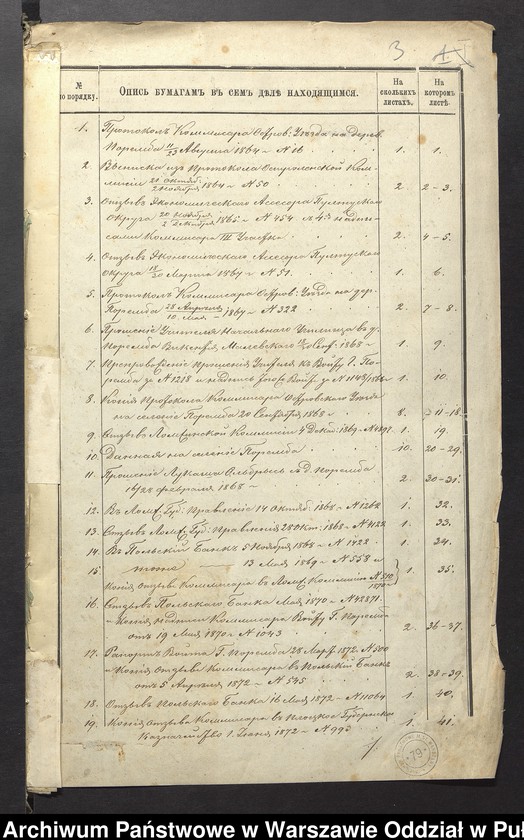 3
№ по порядку. Опись бумагамъ въ семъ дѣлѣ находящимся. На сколькихъ листахъ. На которомъ листѣ.
1. Протоколъ Коммисара Остров: Уѣзда на дерев.
Поремба 11/23 Августа 1864 N 16 1. 1.
2. Выписка изъ Протокола Остроленской Ком-
мисіи 20 Октяб: / 2 Ноября 1864 N 50 2. 2-3.
3. Отзывъ Экономическаго Асесора Пултускаго
Округа 20 Ноября / 2 Декабря 1865 N 454
сами Коммисара III Участка 2. 4-5.
4. Отзывъ Экономическаго Асесора Пултускаго
Округа 18/30 Марта 1867 N 51. 1. 6.
5. Протоколъ Коммисара Остров: Уѣзда на дер.
Поремба 28 Апрѣля / 10 Мая 1867 N 322 2. 7-8.
6. Прошеніе Учителя Начальнаго Училища въ д.
Порембѣ 1868 1. 9.
7. Препровожденіе прошенія Учителя къ Войту Г. По-
ремба за N 1218 1. 10.
8. Копія Протокола Коммисара Островскаго Уѣзда
на селеніе Поремба 20 Сентября 1868 8. 11-18.
9. Отзывъ Ломжинской Коммисіи 4 Декаб: 1869 1. 19.
10. Данная на имѣніе Поремба 10. 20-29.
11. Прошеніе Лукаша д. Поремба
16/28 февраля 1868 2. 30-31.
12. Въ Ломж: Губ: Правленіе 14 Октяб: 1868 N 1262 1. 32.
13. Отзывъ Ломж: Губ: Правленія 28 Окт: 1868 N 4122 1. 33.
14. Въ Польскій Банкъ 5 Ноября 1868 N 1422 1. 34.
15. тоже 13 Мая 1869 N 558 и
Копія отзыва Коммисара въ Ломж: Коммисію N 510 / 1870 1. 35.
16. Отзывъ Польскаго Банка Мая 1870 N 42871
Копія надписи Коммисара Войту Г. Поремба
отъ 19 Мая 1870 N 1043 2. 36-37.
17. Рапортъ Войта Г. Поремба 28 Март. 1872 N 500
Копія Отзыва Коммисара въ Польскій Банкъ
отъ 5 Апрѣля 1872 N 545 2. 38-39.
18. Отзывъ Польскаго Банка 16 Мая 1872 N 11064 1. 40.
19. Копія отзыва Коммисара въ Плоцкое Губернское
Казначейство 1 Іюня 1872 N 993 1. 41.
79
Archiwum Państwowe w Warszawie Oddział w Puł